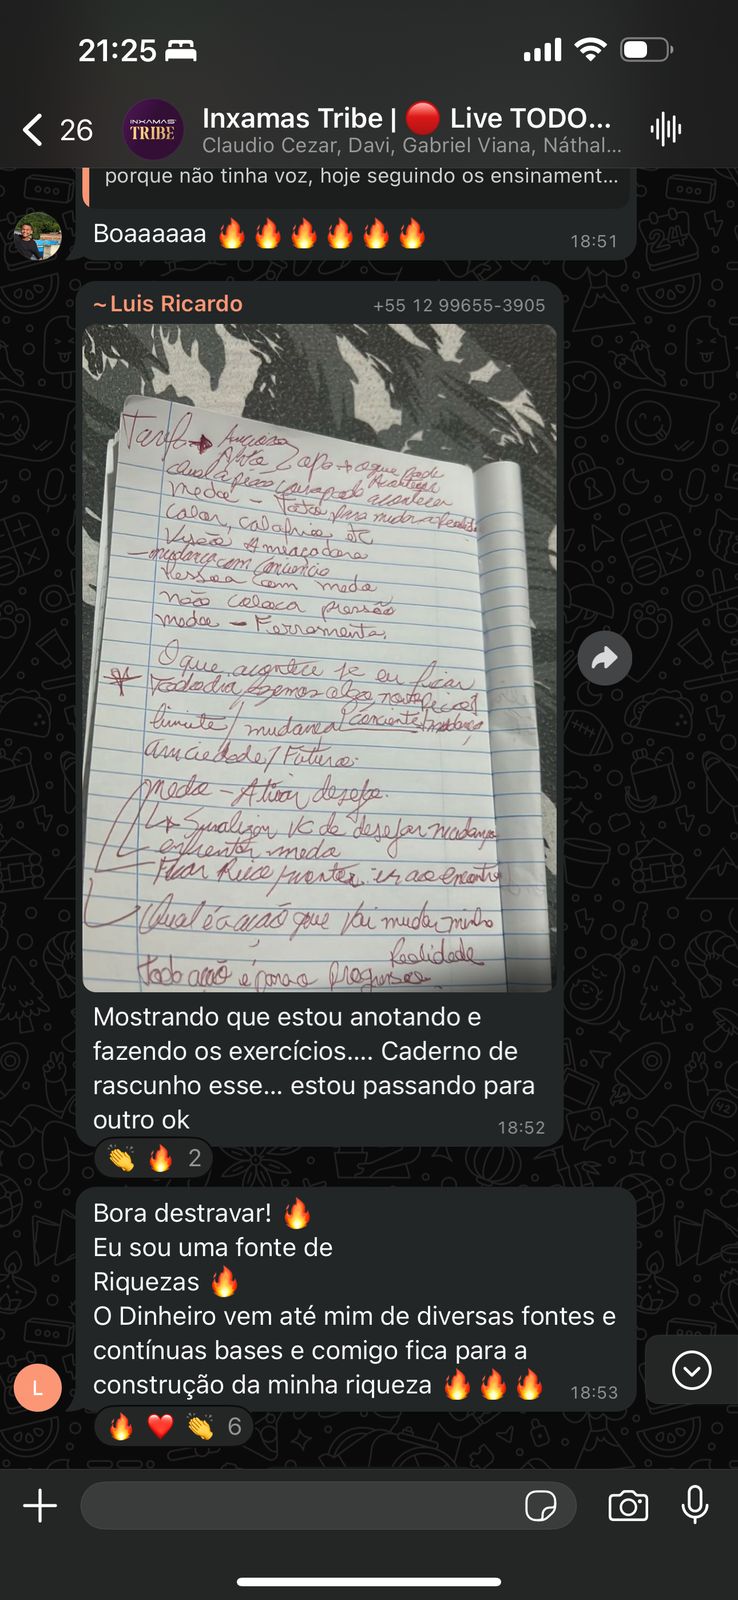 21:25
26
INXAMAS'
TRIBE
Inxamas Tribe | 🔴 Live TODO...
Claudio Cezar, Davi, Gabriel Viana, Náthal...
porque não tinha voz, hoje seguindo os ensinament...
Boaaaaaa 🔥🔥🔥🔥🔥🔥
18:51
~Luis Ricardo
+55 12 99655-3905
o que pode
acontecer
medo
calor, calafrio
Visão Ameaçadora
Pessoa com medo
não coloca pressão
medo - Ferramenta
O que acontece se eu ficar
limite / mudança
ansiedade / Futuro
medo - Ativar desejo.
enfrentar medo
Qual é a ação que vai mudar minha
Realidade
todo ação é para o progresso
Mostrando que estou anotando e
fazendo os exercícios.... Caderno de
rascunho esse... estou passando para
outro ok
18:52
👏 🔥 2
Bora destravar! 🔥
Eu sou uma fonte de
Riquezas 🔥
O Dinheiro vem até mim de diversas fontes e
contínuas bases e comigo fica para a
construção da minha riqueza 🔥🔥🔥
18:53
L
🔥 ❤️ 👏 6